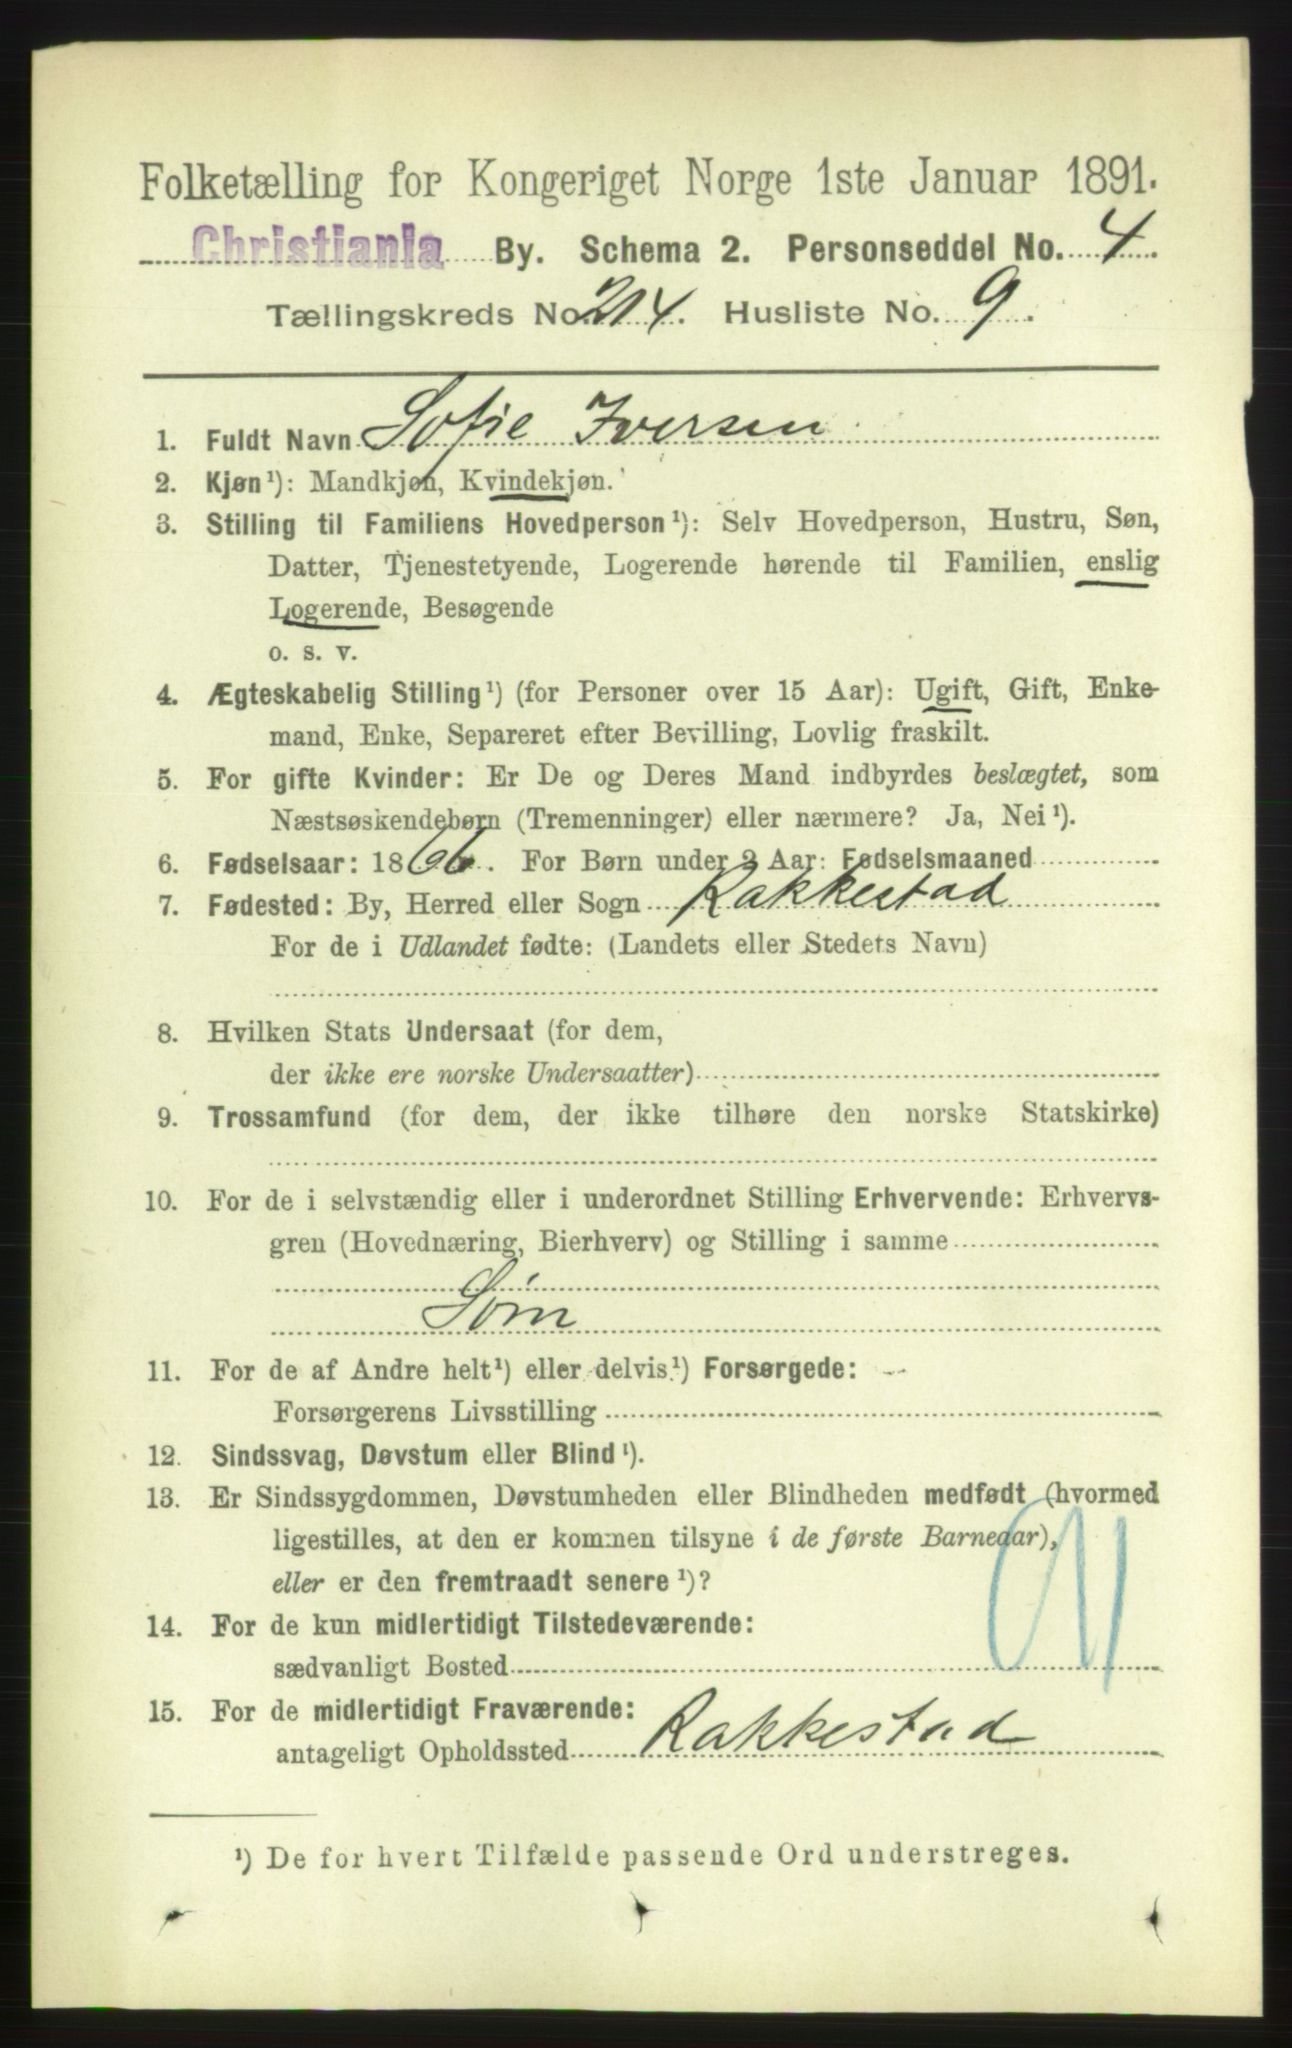 Folketælling for Kongeriget Norge 1ste Januar 1891.
Christiania By. Schema 2. Personseddel No. 4.
Tællingskreds No. 214. Husliste No. 9.
1. Fuldt Navn Sofie Iversen
2. Kjøn¹): Mandkjøn, Kvindekjøn.
3. Stilling til Familiens Hovedperson¹): Selv Hovedperson, Hustru, Søn,
Datter, Tjenestetyende, Logerende hørende til Familien, enslig
Logerende, Besøgende
o. s. v.
4. Ægteskabelig Stilling¹) (for Personer over 15 Aar): Ugift, Gift, Enke-
mand, Enke, Separeret efter Bevilling, Lovlig fraskilt.
5. For gifte Kvinder: Er De og Deres Mand indbyrdes beslægtet, som
Næstsøskendebørn (Tremenninger) eller nærmere? Ja, Nei¹).
6. Fødselsaar: 1866. For Børn under 2 Aar: Fødselsmaaned
7. Fødested: By, Herred eller Sogn Rakkestad
For de i Udlandet fødte: (Landets eller Stedets Navn)
8. Hvilken Stats Undersaat (for dem,
der ikke ere norske Undersaatter)
9. Trossamfund (for dem, der ikke tilhøre den norske Statskirke)
10. For de i selvstændig eller i underordnet Stilling Erhvervende: Erhvervs-
gren (Hovednæring, Bierhverv) og Stilling i samme
Søm
11. For de af Andre helt¹) eller delvis¹) Forsørgede:
Forsørgerens Livsstilling
12. Sindssvag, Døvstum eller Blind¹).
13. Er Sindssygdommen, Døvstumheden eller Blindheden medfødt (hvormed
ligestilles, at den er kommen tilsyne i de første Barneaar),
eller er den fremtraadt senere¹)?
14. For de kun midlertidigt Tilstedeværende:
sædvanligt Bosted
15. For de midlertidigt Fraværende:
antageligt Opholdssted Rakkestad
¹) De for hvert Tilfælde passende Ord understreges.